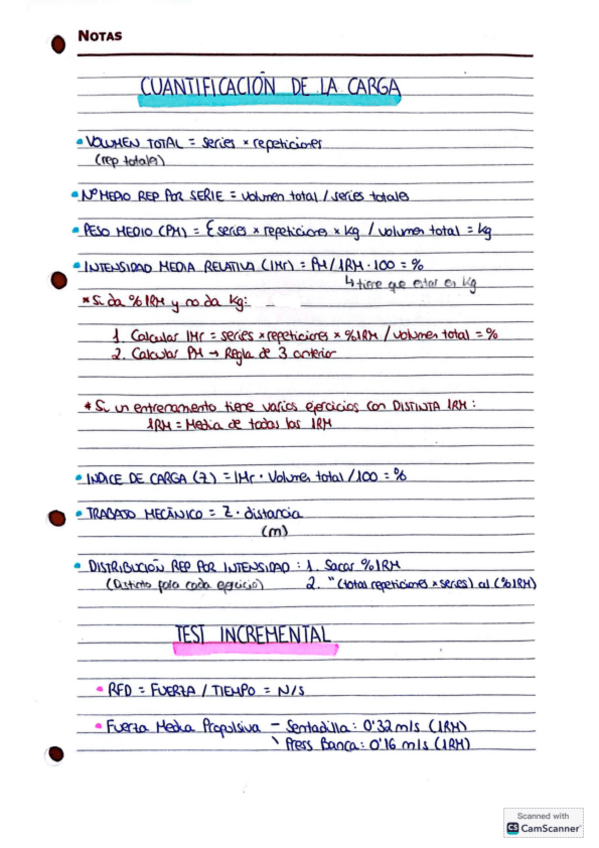 NOTAS
CUANTIFICACIÓN DE LA CARGA
• VOLUMEN TOTAL = series × repeticiones
(rep totales)
• Nº MEDIO REP POR SERIE = volumen total / series totales
• PESO MEDIO (PM) = Σ series × repeticiones × kg / volumen total = kg
• INTENSIDAD MEDIA RELATIVA (IMr) = PM / 1RM · 100 = %
↳ tiene que estar en kg
* Si da % 1RM y no da kg:
1. Calcular IMr = series × repeticiones × % 1RM / volumen total = %
2. Calcular PM → Regla de 3 anterior
* Si un entrenamiento tiene varios ejercicios con DISTINTA 1RM :
1RM = Media de todas las 1RM
• INDICE DE CARGA (Z) = IMr · Volumen total / 100 = %
• TRABAJO MECÁNICO = Z · distancia
(m)
• DISTRIBUCIÓN REP POR INTENSIDAD : 1. Sacar % 1RM
(Distinto para cada ejercicio) 2. "(total repeticiones × series) al (% 1RM)
TEST INCREMENTAL
• RFD = FUERZA / TIEMPO = N/S
• Fuerza Media Propulsiva – Sentadilla : 0'32 m/s (1RM)
\ Press Banca : 0'16 m/s (1RM)
Scanned with
CS CamScanner